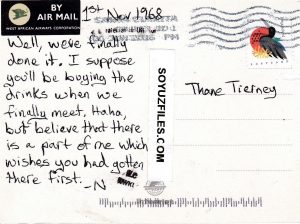 BY
AIR MAIL
GREAT WESTERN AIRWAYS CORPORATION
1st Nov 1968
Well, we've finally
done it. I suppose
you'll be buying the
drinks when we
finally meet, Haha,
but believe that there
is a part of me which
wishes you had gotten
there first. -N
SOYUZFILES.COM
Thane Tierney